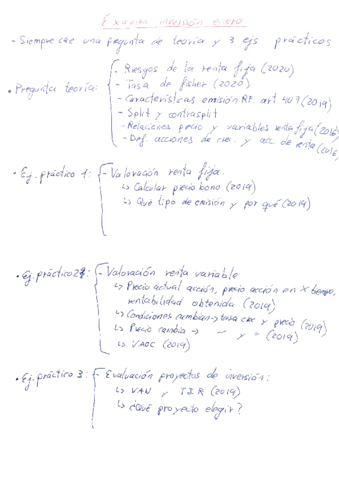 Examen inversión enero
- Siempre cae una pregunta de teoría y 3 ejs prácticos
• Pregunta teoría:
- Riesgos de la renta fija (2020)
- Tasa de fisher (2020)
- Características emisión RF. art 409 (2019)
- Split y contrasplit
- Relaciones precio y variables renta fija (2016)
- Def. acciones de cre. y acc. de renta (2016)
• Ej. práctico 1:
- Valoración renta fija.
↳ Calcular precio bono (2019)
↳ Qué tipo de emisión y por qué (2019)
• Ej. práctico 2:
- Valoración renta variable
↳ Precio actual acción, precio acción en X tiempo,
rentabilidad obtenida (2019)
↳ Condiciones cambian → tasa cre y precio (2019)
↳ Precio cambia → — y = (2019)
↳ VAOC (2019)
• Ej. práctico 3:
- Evaluación proyectos de inversión:
↳ VAN y TIR (2019)
↳ ¿Qué proyecto elegir?